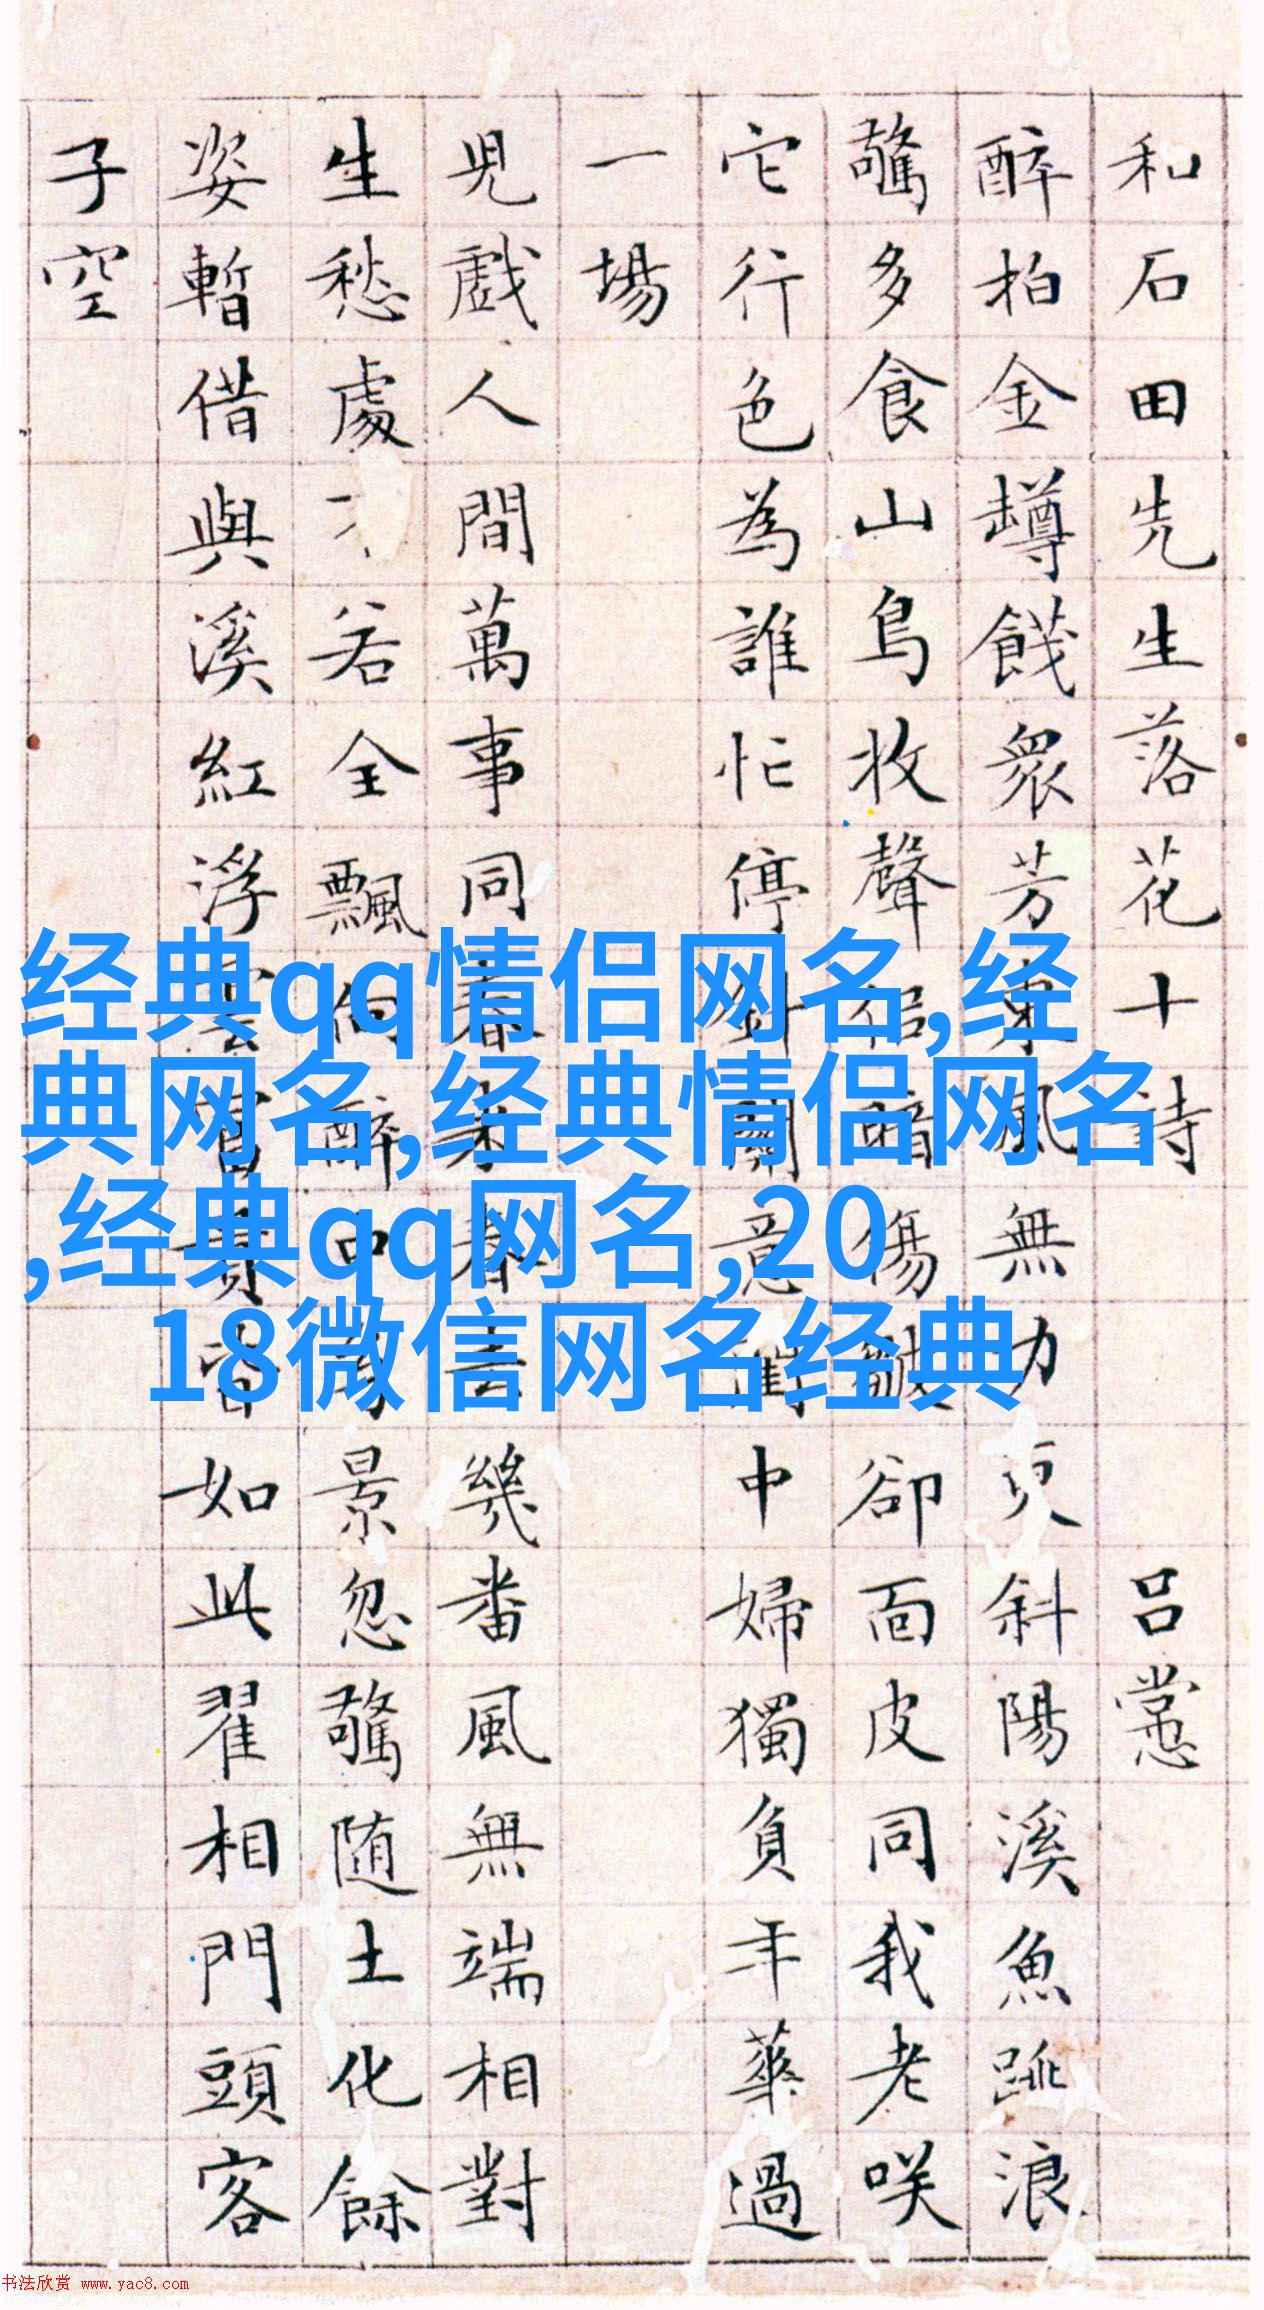 和石田先生落花十詩 呂㦂
醉拍金罇餞衆芳東風無力更斜陽溪魚跳浪
驚多食山鳥收聲侶暗傷皺卻面皮同我老咲
它行色為誰忙停針意中婦獨負年華過
一場
兒戲人間萬事同春來春去幾番風無端相對
生愁處若全飄向醉中景忽驚随土化餘
姿暫借與溪紅浮雲富貴皆如此翟相門頭客
子空
经典qq情侣网名,经
典网名,经典情侣网名
,经典qq网名,20
18微信网名经典
书法欣赏 www.yac8.com